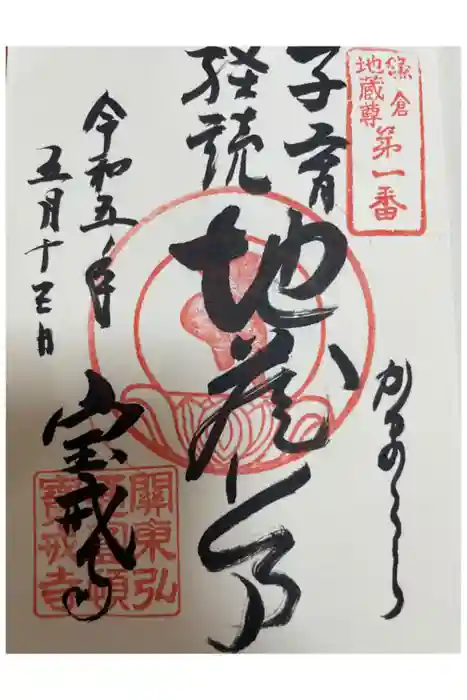 鎌倉
地蔵尊
第一番
かまくら
子育
経読
地蔵尊
令和五年
五月十三日
宝戒寺
關東弘
圓頓
寶戒寺